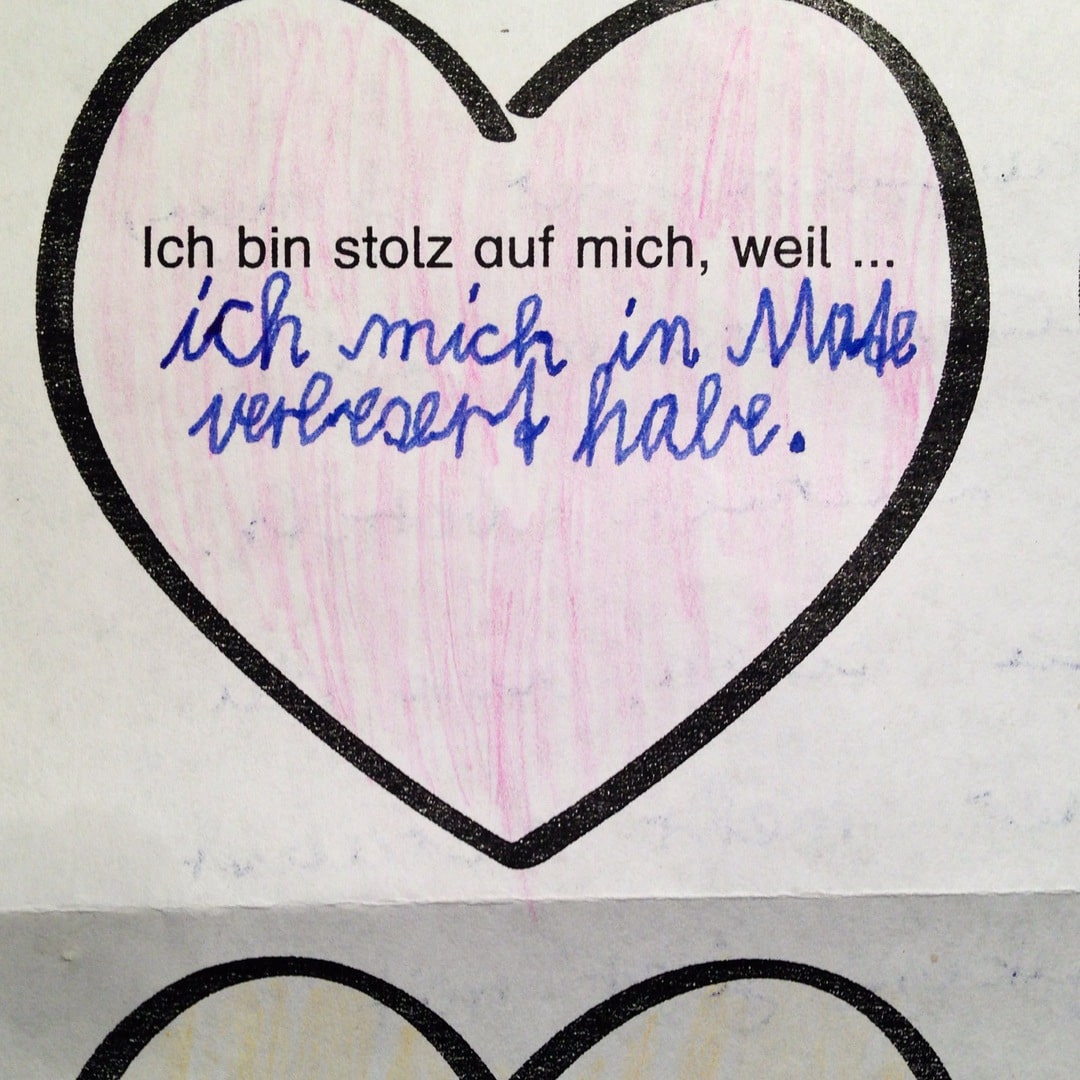 Ich bin stolz auf mich, weil ...
ich mich in Mate
verbesert habe.